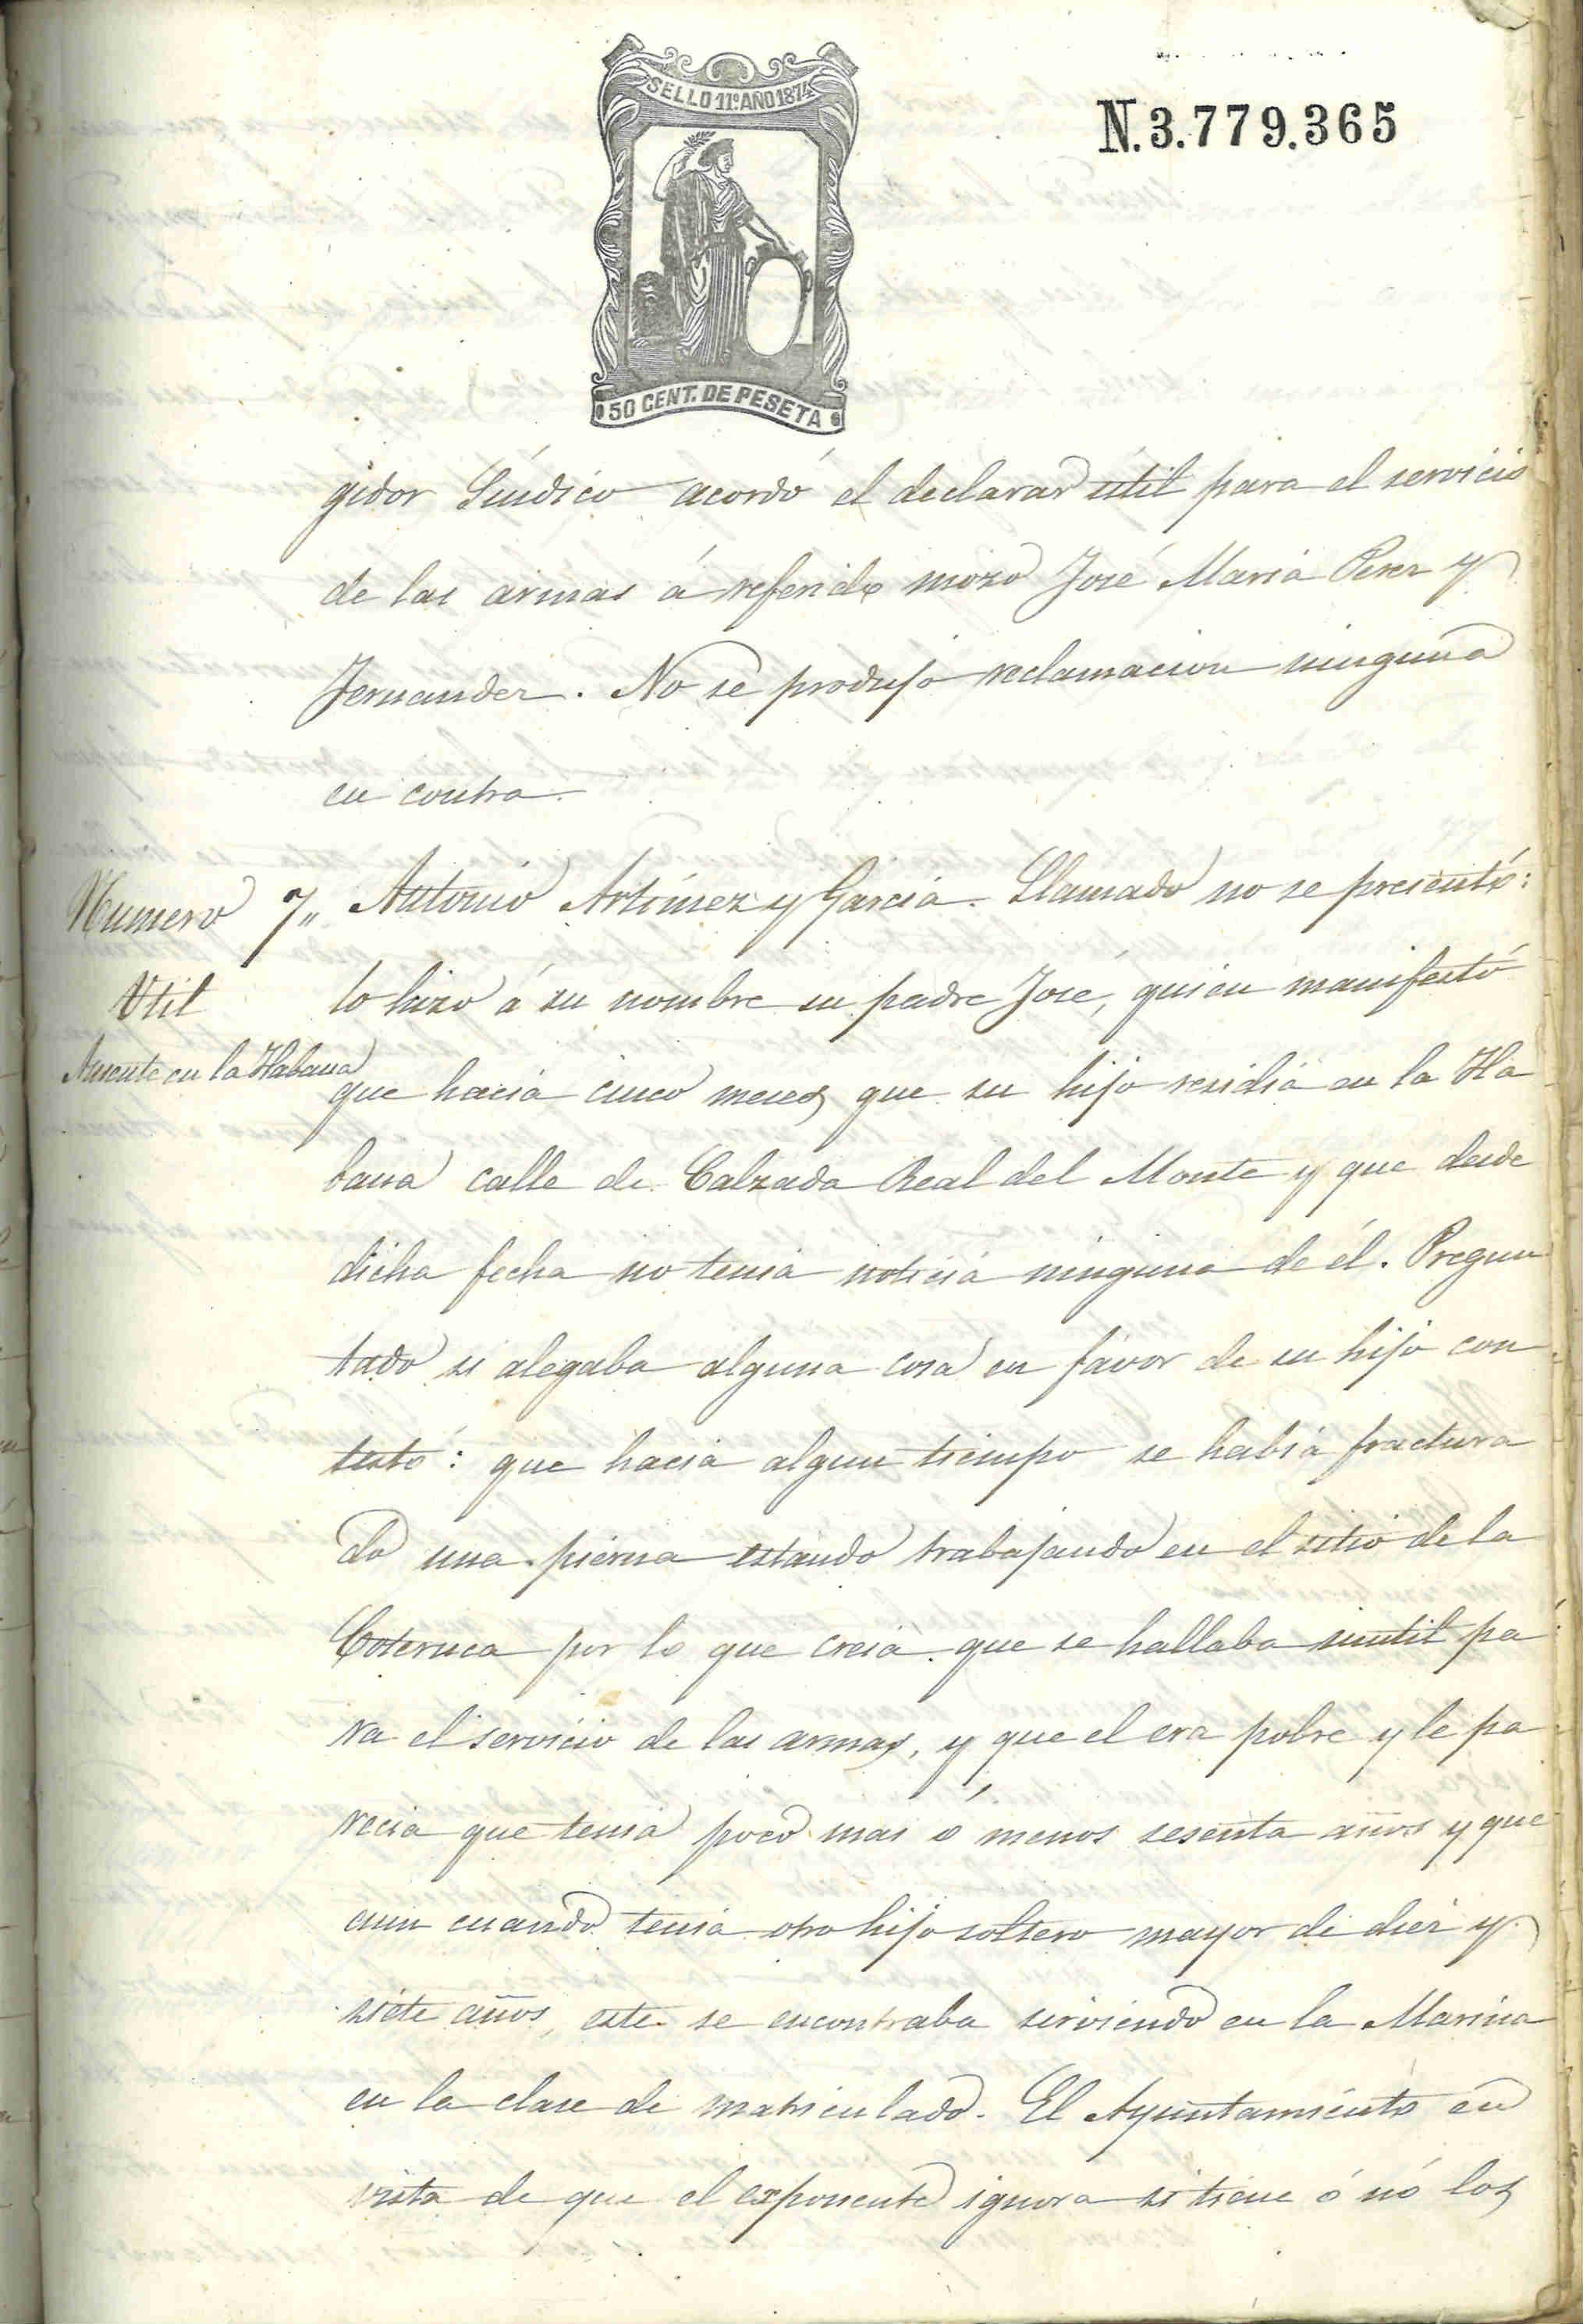 SELLO 11º AÑO 1874
N.3.779.365
50 CENT. DE PESETA
gidor Síndico acordó el declarar util para el servicio
de las armas á referido mozo José Maria Perez y
Fernandez. No se produjo reclamacion ninguna
en contra.
Numero 7„ Antonio Artímez y Garcia. Llamado no se presentó:
Util lo hizo á su nombre su padre José, quien manifestó
Ausente en la Habana
que hacia cinco meses que su hijo residia en la Ha
bana calle de Calzada Real del Monte y que desde
dicha fecha no tenia noticia ninguna de él. Pregun
tado si alegaba alguna cosa en favor de su hijo con
testó: que hacia algun tiempo se habia fractura
do una pierna estando trabajando en el sitio de la
Coteruca por lo que creia que se hallaba inutil pa
ra el servicio de las armas, y que el era pobre y le pa
recia que tenia poco mas ó menos sesenta años y que
aun cuando tenia otro hijo soltero mayor de diez y
siete años, este se encontraba sirviendo en la Marina
en la clase de matriculado. El Ayuntamiento en
vista de que el exponente ignora si tiene ó nó los